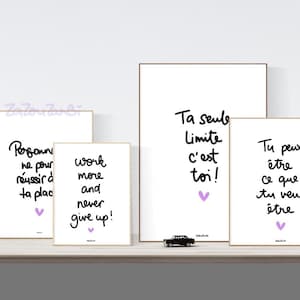 ZaZouZazBi
Personne
ne pour
réussir à
ta place
work
more
and
never
give up!
Ta seule
limite
c'est
toi!
Tu peux
être
ce que
tu veux
être